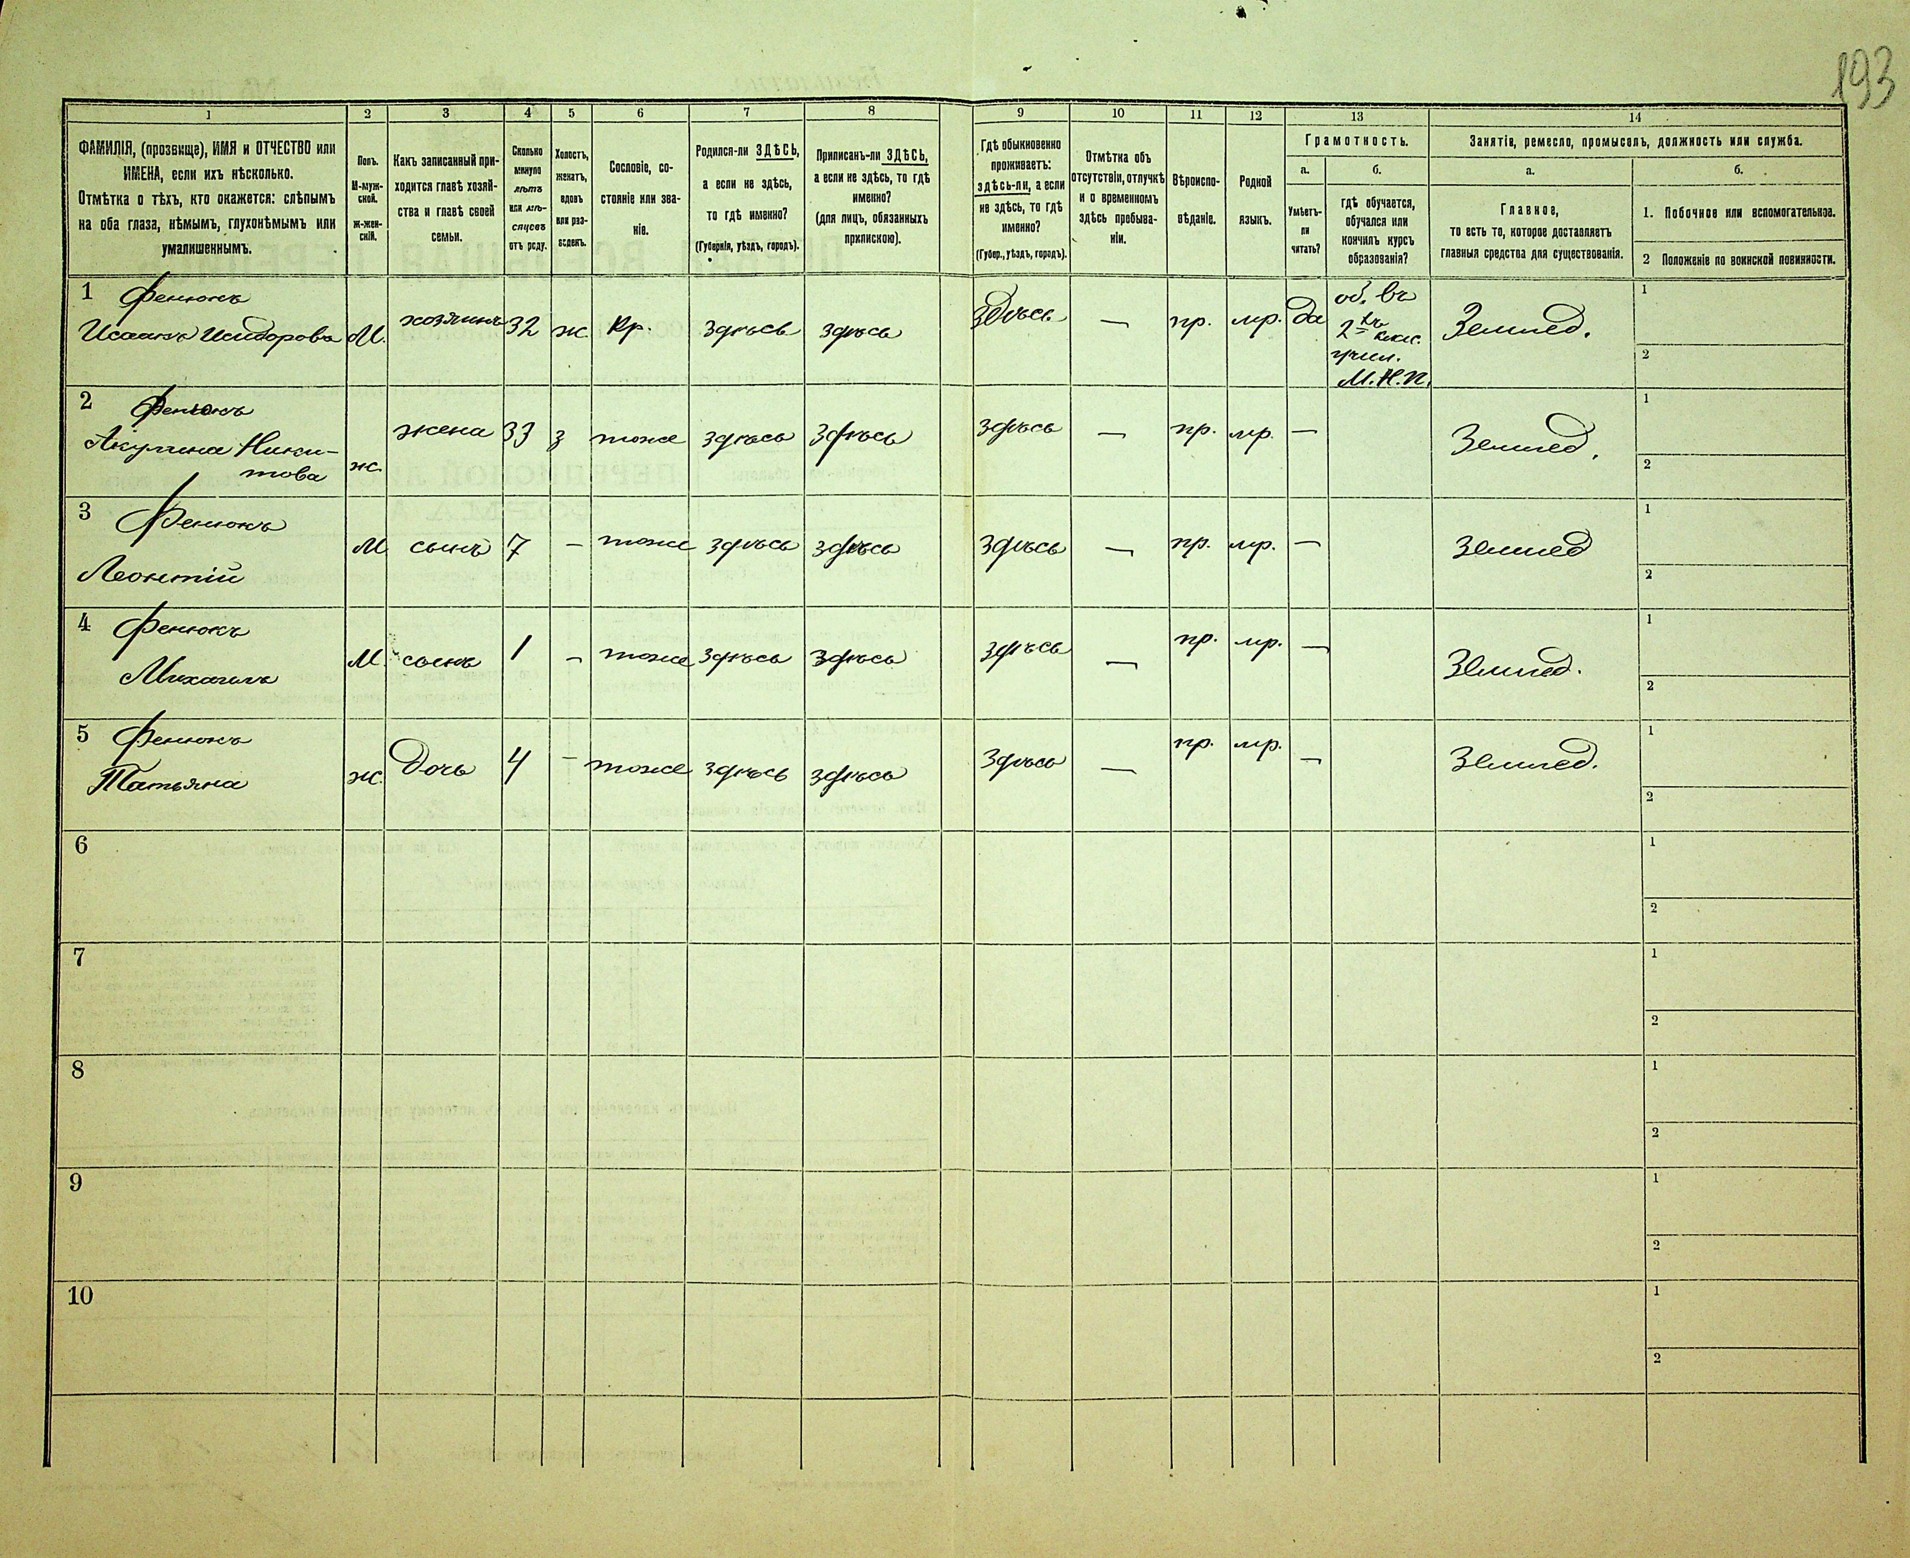 193
1
2
3
4
5
6
7
8
9
10
11
12
13
14
ФАМИЛІЯ, (прозвище), ИМЯ и ОТЧЕСТВО или
ИМЕНА, если ихъ нѣсколько.
Отмѣтка о тѣхъ, кто окажется: слѣпымъ
на оба глаза, нѣмымъ, глухонѣмымъ или
умалишеннымъ.
Полъ.
М-муж-
ской.
ж-жен-
скій.
Какъ записанный при-
ходится главѣ хозяй-
ства и главѣ своей
семьи.
Сколько
минуло
лѣтъ
или мѣ-
сяцевъ
отъ роду.
Холостъ,
женатъ,
вдовъ
или раз-
веденъ.
Сословіе, со-
стояніе или зва-
ніе.
Родился-ли ЗДѢСЬ,
а если не здѣсь,
то гдѣ именно?
(Губернія, уѣздъ, городъ).
Приписанъ-ли ЗДѢСЬ,
а если не здѣсь, то гдѣ
именно?
(для лицъ, обязанныхъ
припискою).
Гдѣ обыкновенно
проживаетъ:
здѣсь-ли, а если
не здѣсь, то гдѣ
именно?
(Губер., уѣздъ, городъ).
Отмѣтка объ
отсутствіи, отлучкѣ
и о временномъ
здѣсь пребыва-
ніи.
Вѣроиспо-
вѣданіе.
Родной
языкъ.
Грамотность.
а.
Умѣетъ-
ли
читать?
б.
гдѣ обучается,
обучался или
кончилъ курсъ
образованія?
Занятія, ремесло, промыселъ, должность или служба.
а.
Главное,
то есть то, которое доставляетъ
главныя средства для существованія.
б.
1. Побочное или вспомогательное.
2 Положеніе по воинской повинности.
1 Фенюкъ
Исаакъ Исидоровъ М. хозяинъ 32 ж. Кр. здѣсь здѣсь здѣсь — пр. мр. да
об. въ
2хъ клас.
учил.
М.Н.П.
Землед.
1
2
2 Фенюкъ
Акулина Ники-
това
ж. жена 33 з тоже здѣсь здѣсь здѣсь — пр. мр. — Землед.
1
2
3 Фенюкъ
Леонтій
М сынъ 7 — тоже здѣсь здѣсь здѣсь — пр. мр. — Землед
1
2
4 Фенюкъ
Михаилъ
М. сынъ 1 — тоже здѣсь здѣсь здѣсь — пр. мр. — Землед.
1
2
5 Фенюкъ
Татьяна
ж. дочь 4 — тоже здѣсь здѣсь здѣсь — пр. мр. — Землед.
1
2
6
1
2
7
1
2
8
1
2
9
1
2
10
1
2